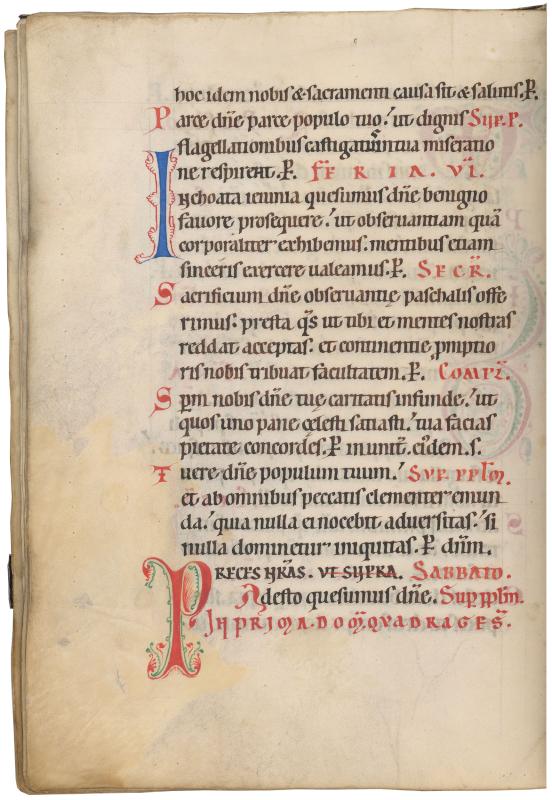 hoc idem nobis & sacramenti causa sit & salutis. P̄.
Parce dn̄e parce populo tuo. ut dignis SUP. P.
flagellationibus castigatus in tua miseratio
ne respiret. P̄. FERIA. VI.
Inchoata ieiunia quesumus dn̄e benigno
fauore prosequere. ut obseruantiam quā
corporaliter exhibemus. mentibus etiam
sinceris exercere ualeamus. P̄. SECR̄.
Sacrificium dn̄e obseruantię paschalis offe
rimus. presta qs̄ ut tibi et mentes nostras
reddat acceptas. et continentię pmptio
ris nobis tribuat facultatem. P̄. COMPL̄.
Spm̄ nobis dn̄e tuę caritatis infunde. ut
quos uno pane cęlesti satiasti. tua facias
pietate concordes. P̄ in unit̄. eiꝰdem. s.
Tuere dn̄e populum tuum. SUP. PPLM̄.
et ab omnibus peccatis clementer emun
da. quia nulla ei nocebit aduersitas. si
nulla dominetur iniquitas. P̄ dn̄m.
PRECES NR̄AS. UT SUPRA. SABBATO.
Adesto quesumus dn̄e. Sup pplm̄.
IN PRIMA. DOM̄. QUADRAGES̄.